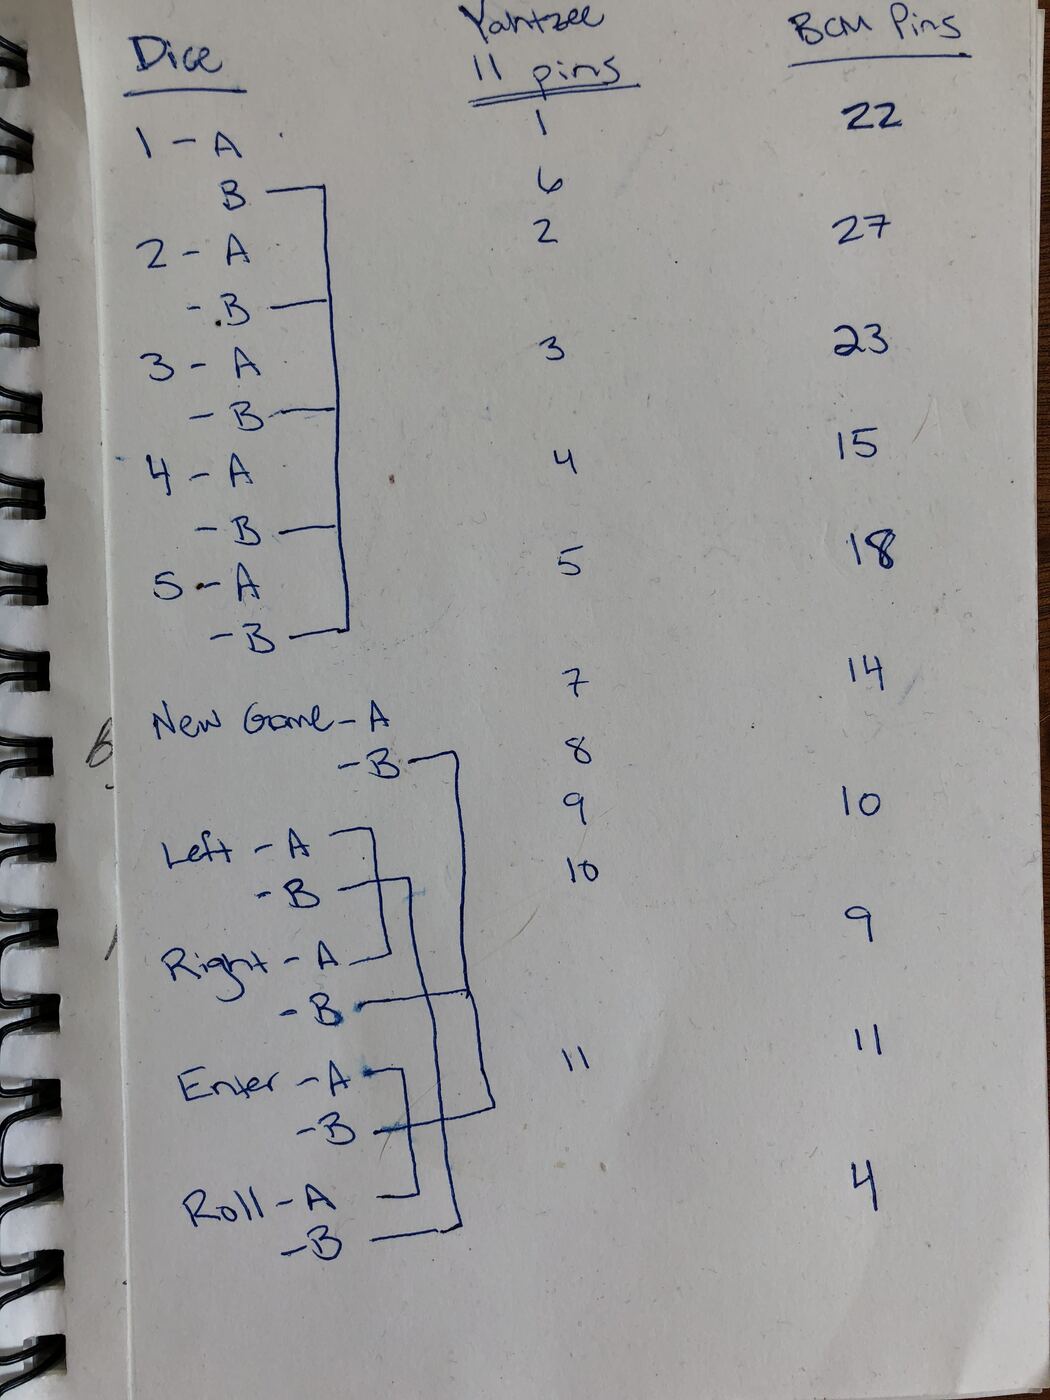 Dice Yahtzee BCM Pins
11 pins
1 - A 1 22
B 6
2 - A 2 27
- B
3 - A 3 23
- B
4 - A 4 15
- B
5 - A 5 18
- B
New Game - A 7 14
- B 8
9 10
Left - A
- B 10
Right - A 9
- B
Enter - A 11 11
- B
Roll - A 4
- B